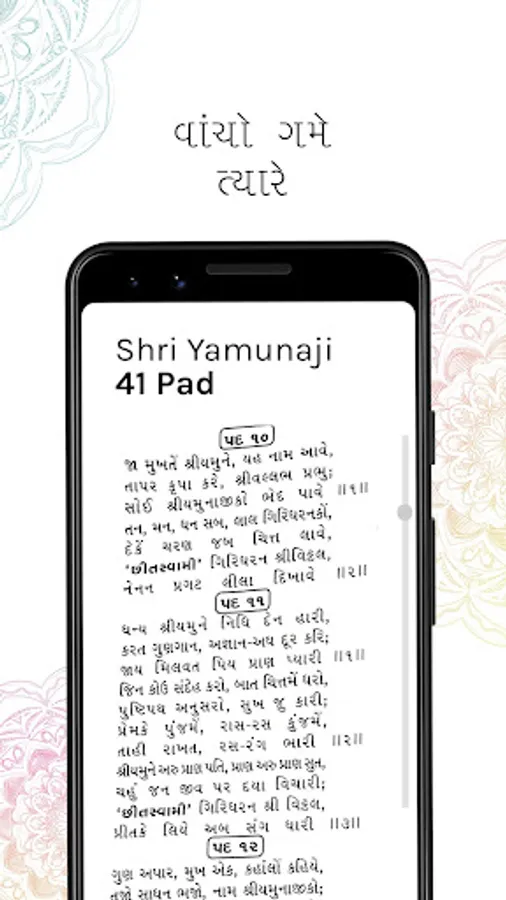 વાંચો ગમે
ત્યારે
Shri Yamunaji
41 Pad
પદ ૧૦
જા મુખતેં શ્રીયમુને, યહ નામ આવે,
તાપર કૃપા કરે, શ્રીવલ્લભ પ્રભુ;
સોઈ શ્રીયમુનાજીકો ભેદ પાવે ॥૧॥
તન, મન, ધન સબ, લાલ ગિરિધરનકોં,
દેકેં ચરણ જબ ચિત્ત લાવે,
‘છીતસ્વામી’ ગિરિધરન શ્રીવિઠ્ઠલ,
નેનન પ્રગટ લીલા દિખાવે ॥૨॥
પદ ૧૧
ધન્ય શ્રીયમુને નિધિ દેન હારી,
કરત ગુણગાન, અજ્ઞાન-અઘ દૂર કરિ;
જાય મિલવત પિય પ્રાણ પ્યારી ॥૧॥
જિન કોઉ સંદેહ કરો, બાત ચિત્તમેં ધરો,
પુષ્ટિપથ અનુસરો, સુખ જુ કારી;
પ્રેમકે પુંજમેં, રાસ-રસ કુંજમેં,
તાહી રાખત, રસ-રંગ ભારી ॥૨॥
શ્રીયમુને અરુ પ્રાણ પતિ, પ્રાણ અરુ પ્રાણ સુત,
ચહું જન જીવ પર દયા વિચારી;
‘છીતસ્વામી’ ગિરિધરન શ્રી વિઠ્ઠલ,
પ્રીતકે લિયે અબ સંગ ધારી ॥૩॥
પદ ૧૨
ગુણ અપાર, મુખ એક, કહાંલોં કહિયે,
તજો સાધન ભજો, નામ શ્રીયમુનાજીકો;